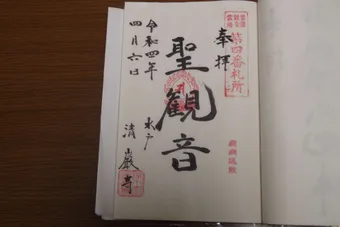 奉拝
第四番札所
聖観音
水戸
清巌寺
令和四年
四月六日